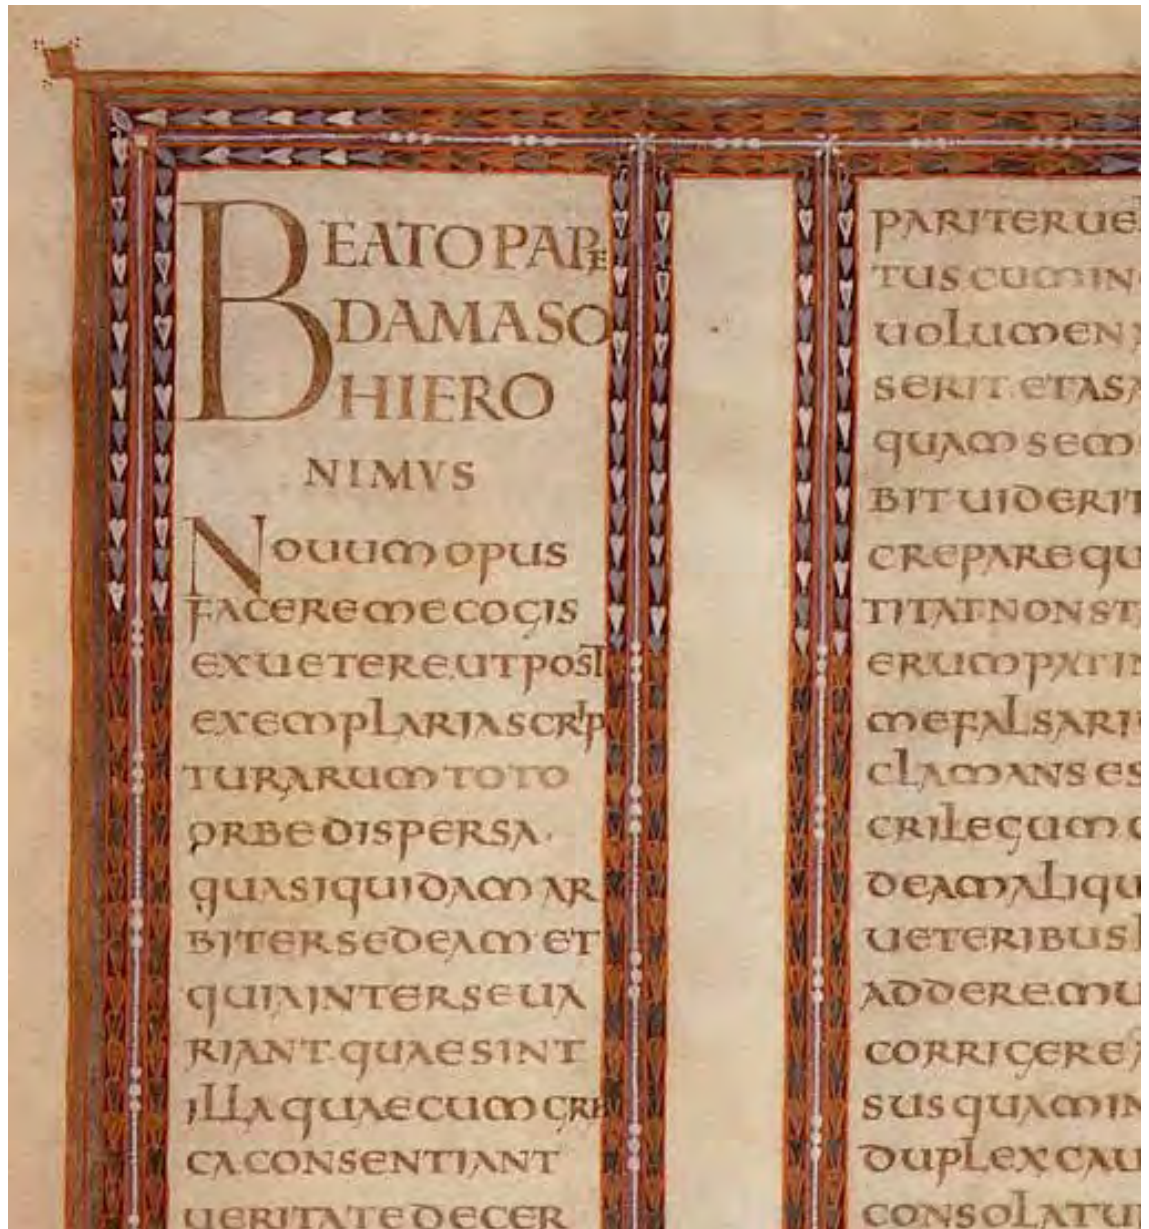 BEATO PAPE
DAMASO
HIERO
NIMVS
Nouum opus
facere me cogis
ex uetere. ut post
exemplaria scrip
turarum toto
orbe dispersa·
quasi quidam ar
biter sedeam et
quia inter se ua
riant. quae sint
illa quae cum gre
ca consentiant
ueritate decer
pariter ue
tus cum in
uolumen
serit. et a sa
quam sem
bit uiderit
crepare qu
titat non st
erum patin
me falsari
clamans es
crilegum
deam aliqu
ueteribus
addere. mu
corrigere
sus quam in
duplex cau
consolatu